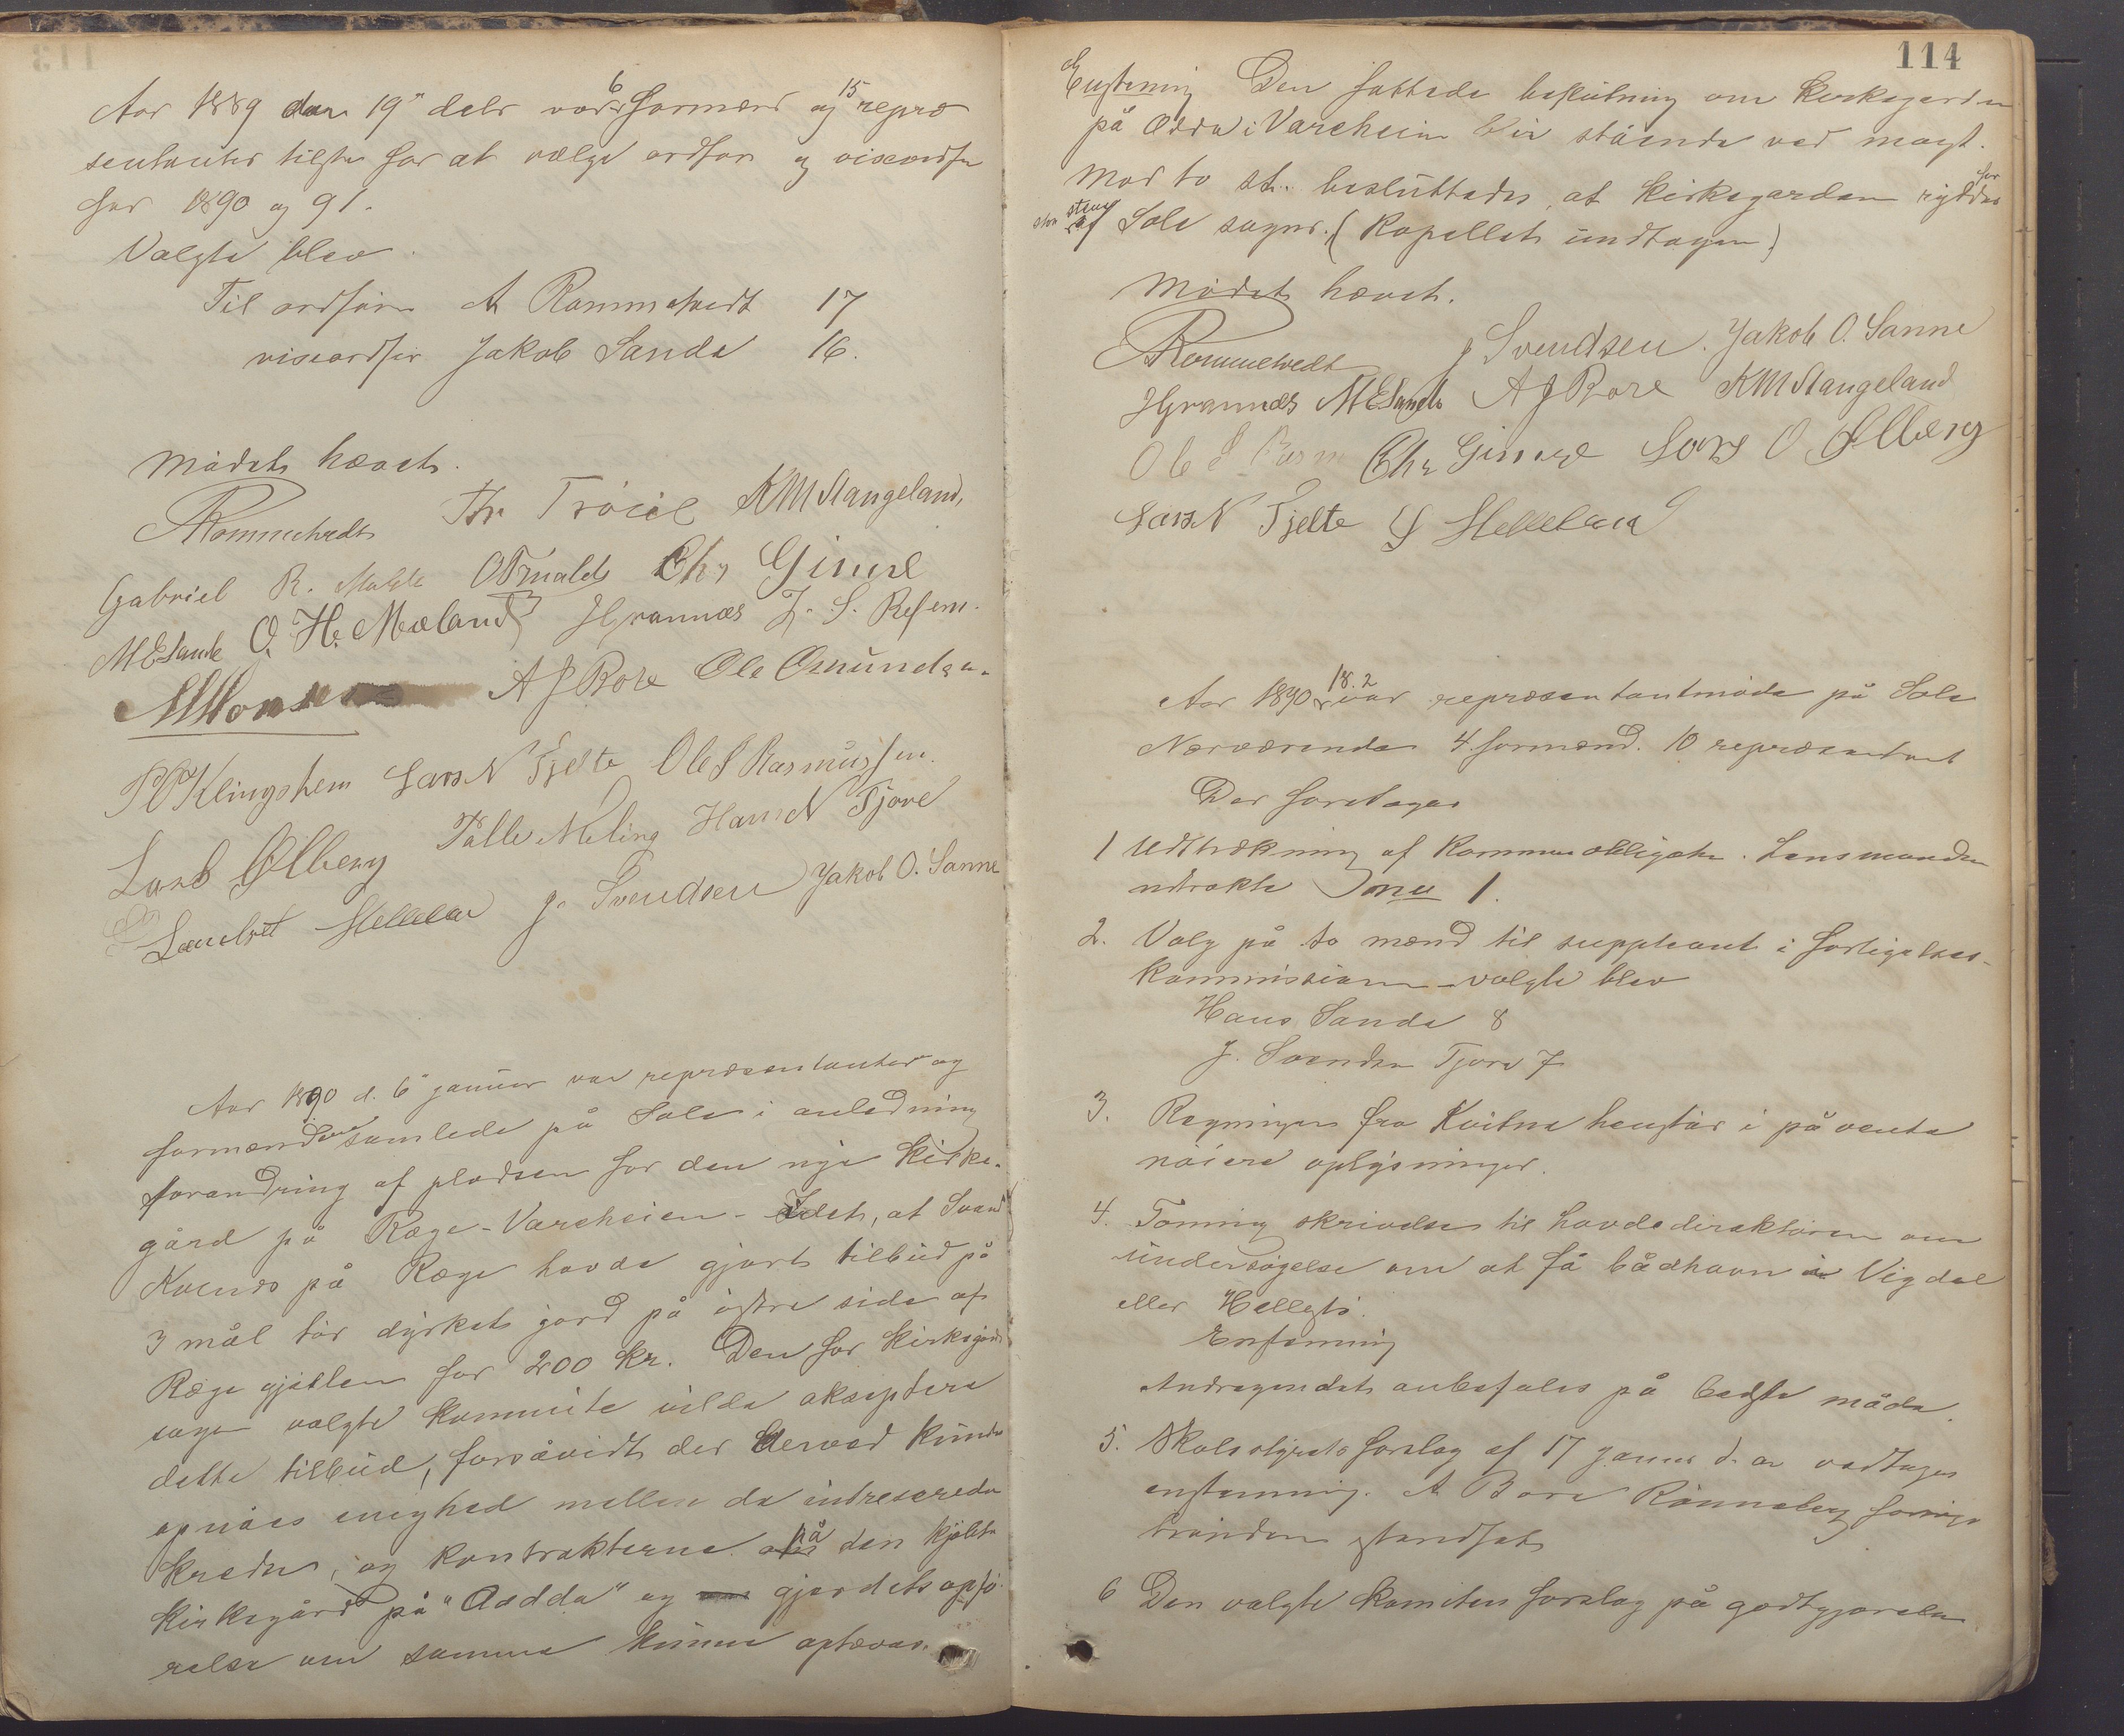 Aar 1889 den 19" debr var 6 formænd og 15 repræ
sentanter tilste for at vælge ordfør og viseordfr
for 1890 og 91.
Valgte blev.
Til ordfører A Rommetvedt 17
viseordfør Jakob Sande 16.
Mødet hævet.
ARommetvedt Thr Tjøiel KM Stangeland,
Gabriel R. Malde OTmalde Chr Gimre
MESande O. H. Mæland Hgrannæs
AJBore Ole Osmundsen
POKlingshem Lars N Tjelte Ole S Rasmussen.
Lars Ølberg Tálle Meling Hans N Tjore
Helleland J. Svendsen Jakob O. Sanne
Aar 1890 d. 6 januar var repræsentanter og
formænd samlede på Sole i anledning
forandring af pladsen for den nye kirke-
gård på Ræge-Vareheien - Idet, at Svend
på Ræge havde gjort tilbud på
3 mål tør dyrket jord på østre side af
Ræge gjetlen for 200 kr. Den for kirkegårds
sagen valgte kommite vilde akseptere
dette tilbud, forsåvidt der derved kunde
opnåes enighed mellem de intreserede
kredse, og kontrakterne på den kjøbte
kirkegård på "Aadda" og gjerdets opfø-
relse om samme kunne ophæves.
114
Enstemig Den fattede beslutning om kirkegarden
på Ødda i Vareheien blir stående ved magt.
Mod to st. besluttedes, at kirkegarden ryddes for
stor sten af Sole sogn. (Kapellet undtagen)
Mødet hævet.
ARommetvedt J Svendsen. Jakob O. Sanne
Hgrannæs MESande AJBore KMStangeland
Ole S Rasm Chr Gimre Lars O Ølberg
Lars N Tjelte Helleland
Aar 1890 18.2 var repræsentantmøde på Sole
Nærværende 4 formænd. 10 repræsentant
Der foretages
1 Udtrækning af Kommuneobligation. Lensmanden
udtrakte No 1.
2. Valg på to mænd til suppleant i forligelses-
kommissionen - valgte blev
Hans Sande 8
J. Svendsen Tjore 7
3. Regningen fra Kvitne henstår i på vente
nøiere oplysninger.
4. Tanning skrivelse til havnedirektøren om
undersøgelse om at få bådhavn i Vigdel
eller Hellestø.
Enstemmig
Andragendet anbefales på bedste måde.
5. Skolestyrets forslag af 17 januar d. a. vedtages
enstemmig. A Bore Rønneberg
brønden istandsat
6 Den valgte komites forslag på godtgjørelse